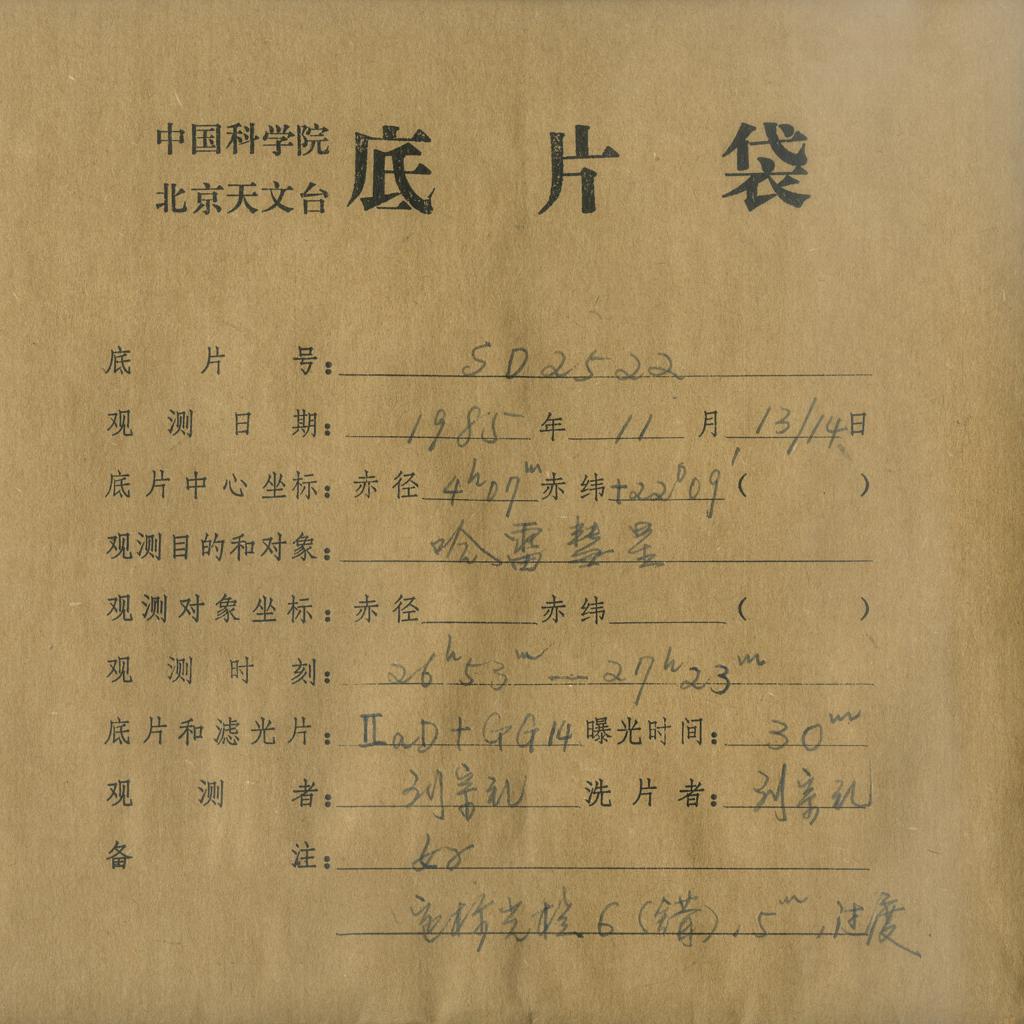 中国科学院
北京天文台
底片袋
底片号：SD2522
观测日期：1985年11月13/14日
底片中心坐标：赤径4ʰ07ᵐ赤纬+22°09′（ ）
观测目的和对象：哈雷彗星
观测对象坐标：赤径 赤纬 （ ）
观测时刻：26ʰ53ᵐ—27ʰ23ᵐ
底片和滤光片：ⅡaD+GG14 曝光时间：30ᵐ
观测者：刘宗礼 洗片者：刘宗礼
备注：好
定标光栏6（错），5ᵐ，过度